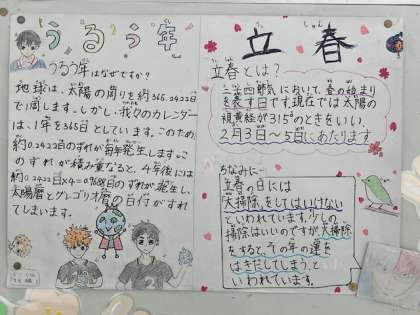 うるう年
うるう年はなぜですか?
地球は、太陽の周りを約365.2422日
で1周します。しかし、我々のカレンダー
は、1年を365日としています。このため、
約0.2422日のずれが毎年発生します。こ
のずれが積み重なると、4年後には
約0.2422日×4=0.9688日のずれが発生し、
太陽暦とグレゴリオ暦の日付がずれ
てしまいます。
立春
りっ しゅん
立春とは?
二十四節気において、春の始まり
を表す日です。現在では太陽の
視黄経が315°のときをいい、
2月3日〜5日にあたります
ちなみに…
立春の日には
「大掃除」をしてはいけない
といわれています。少しの
掃除はいいのですが、大掃除
をすると、その年の運を
はきだしてしまう、と
いわれています。
2